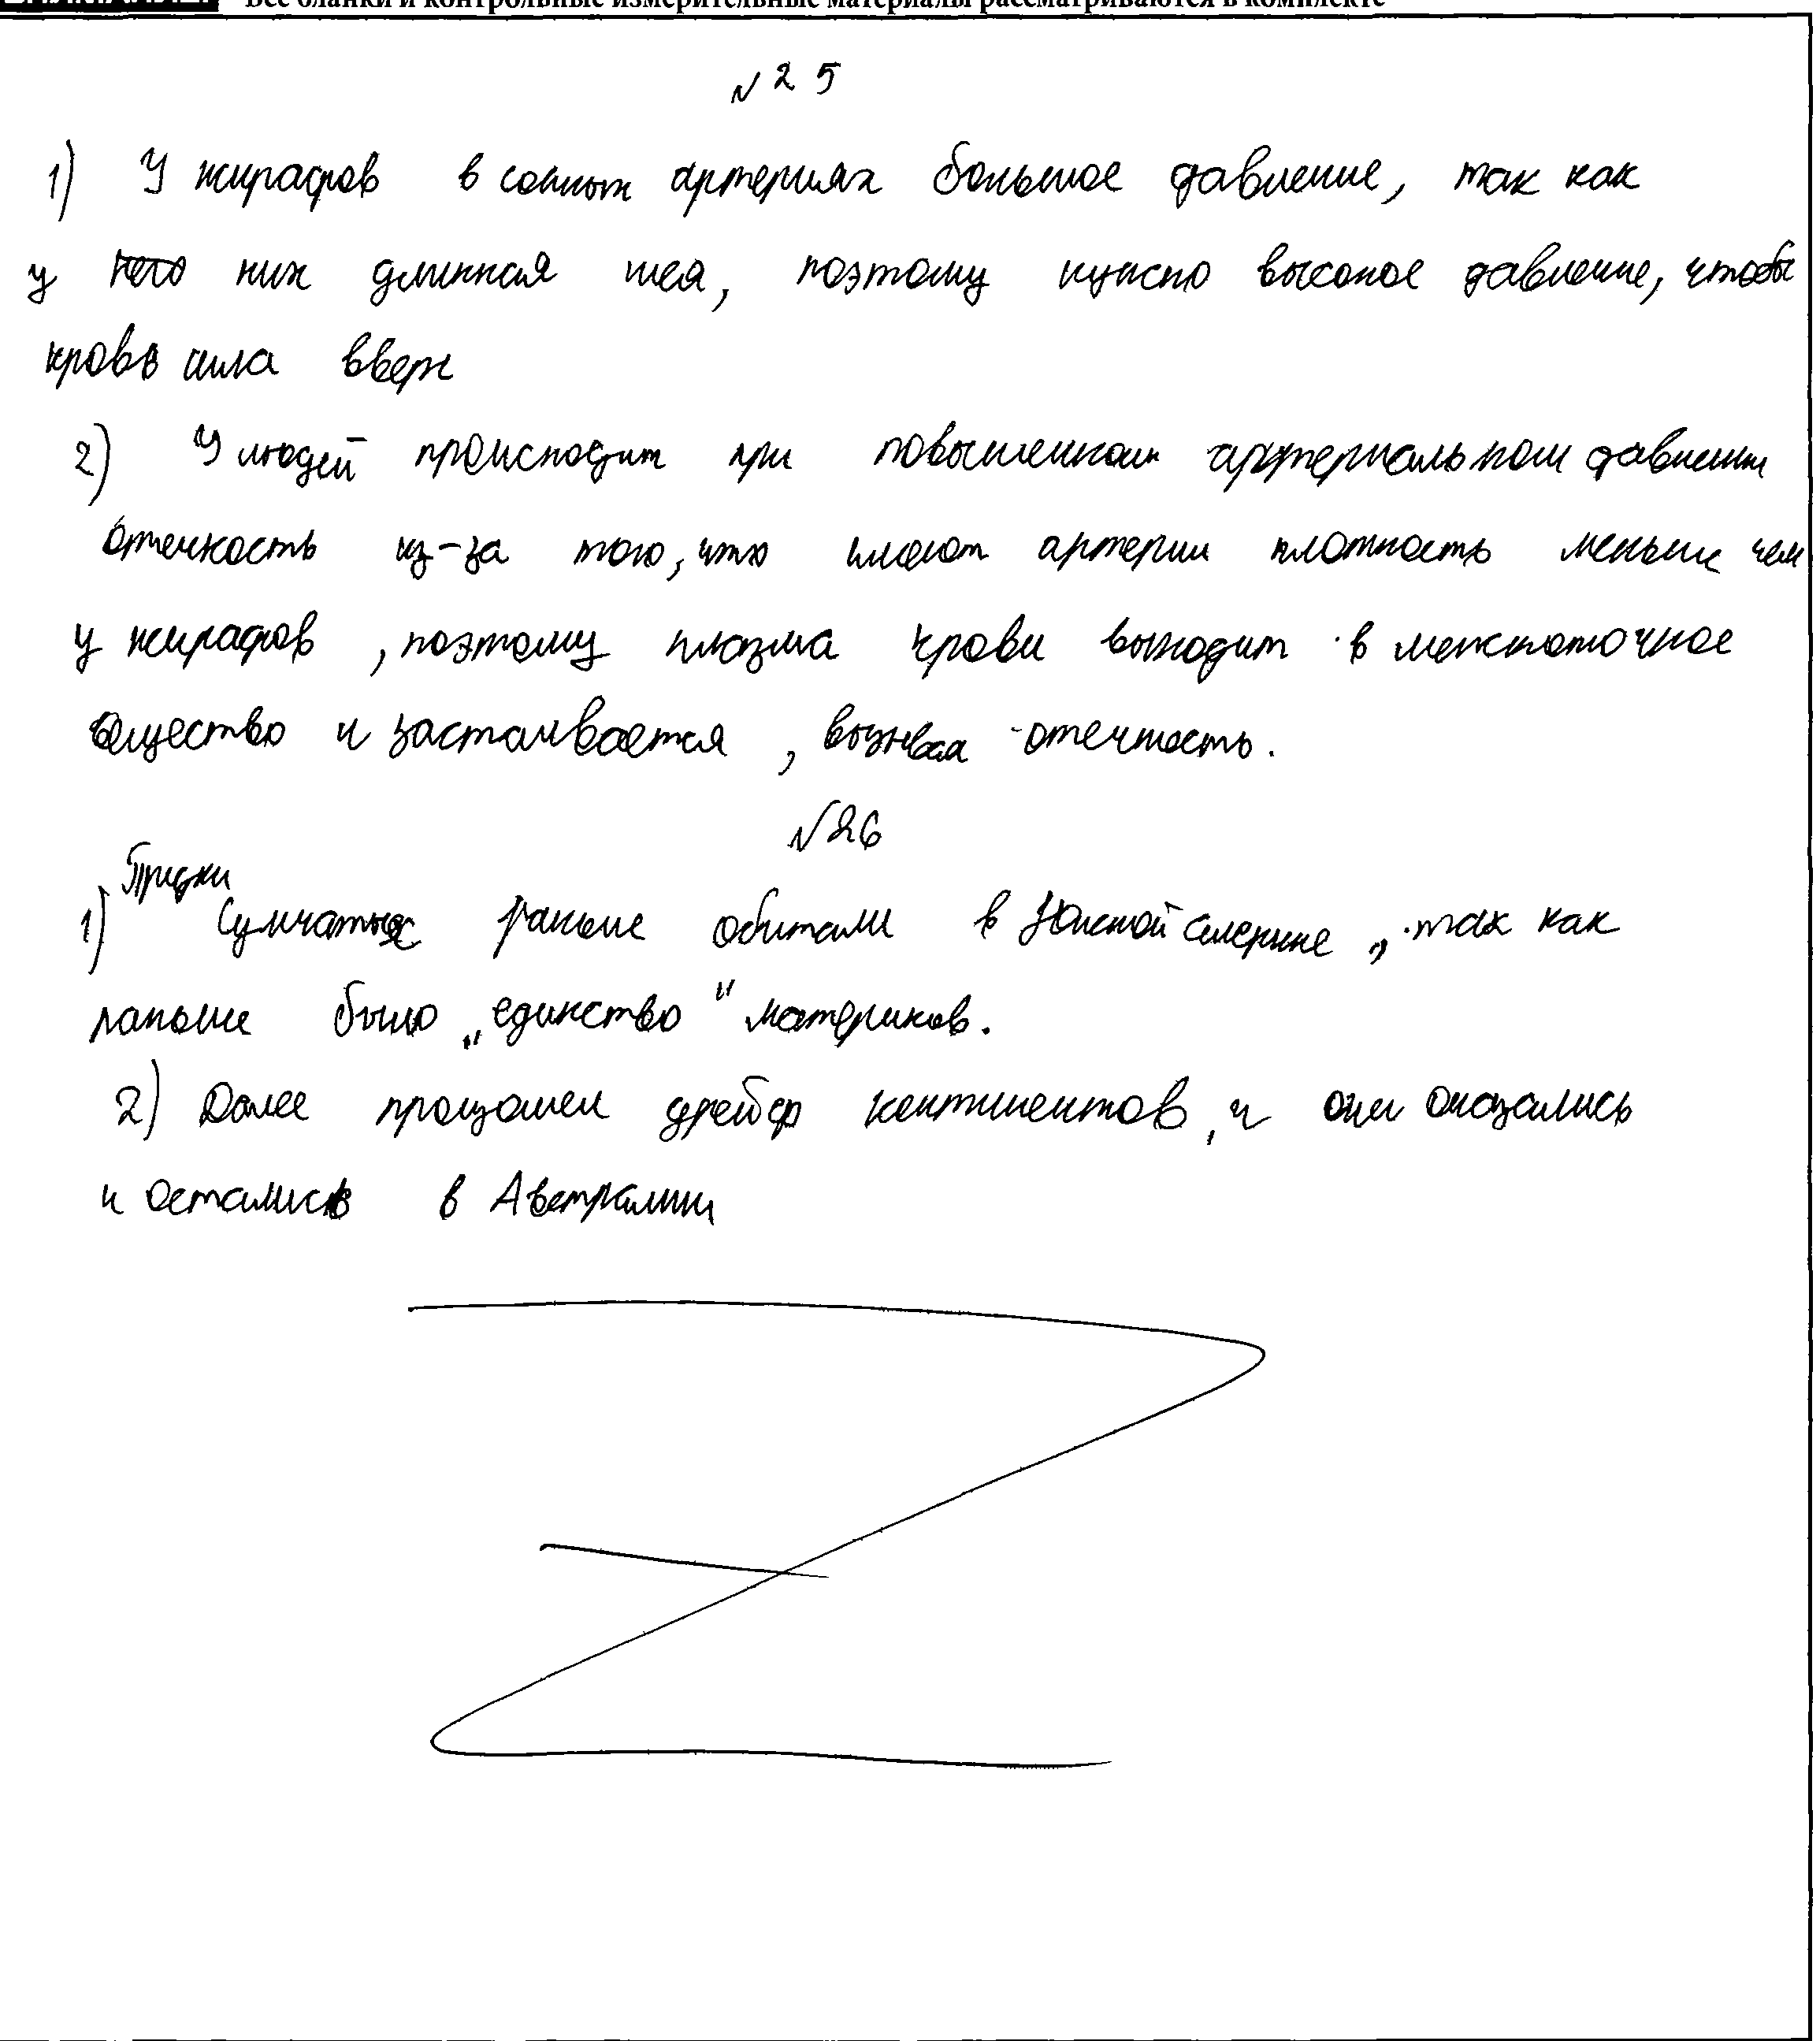 Все бланки и контрольные измерительные материалы рассматриваются в комплекте
№25
1) У жирафов в сонных артериях большое давление, так как
у него них длинная шея, поэтому нужно высокое давление, чтобы
кровь шла вверх
2) У людей происходит при повышенном артериальном давлении
отечность из-за того, что имеют артерии плотность меньше чем
у жирафов, поэтому плазма крови выходит в межклеточное
вещество и застаивается, вызывая отечность.
№26
Предки
1) Сумчатых раньше обитали в Южной Америке, так как
раньше было „единство" материков.
2) Далее произошел дрейф континентов, и они оказались
и остались в Австралии